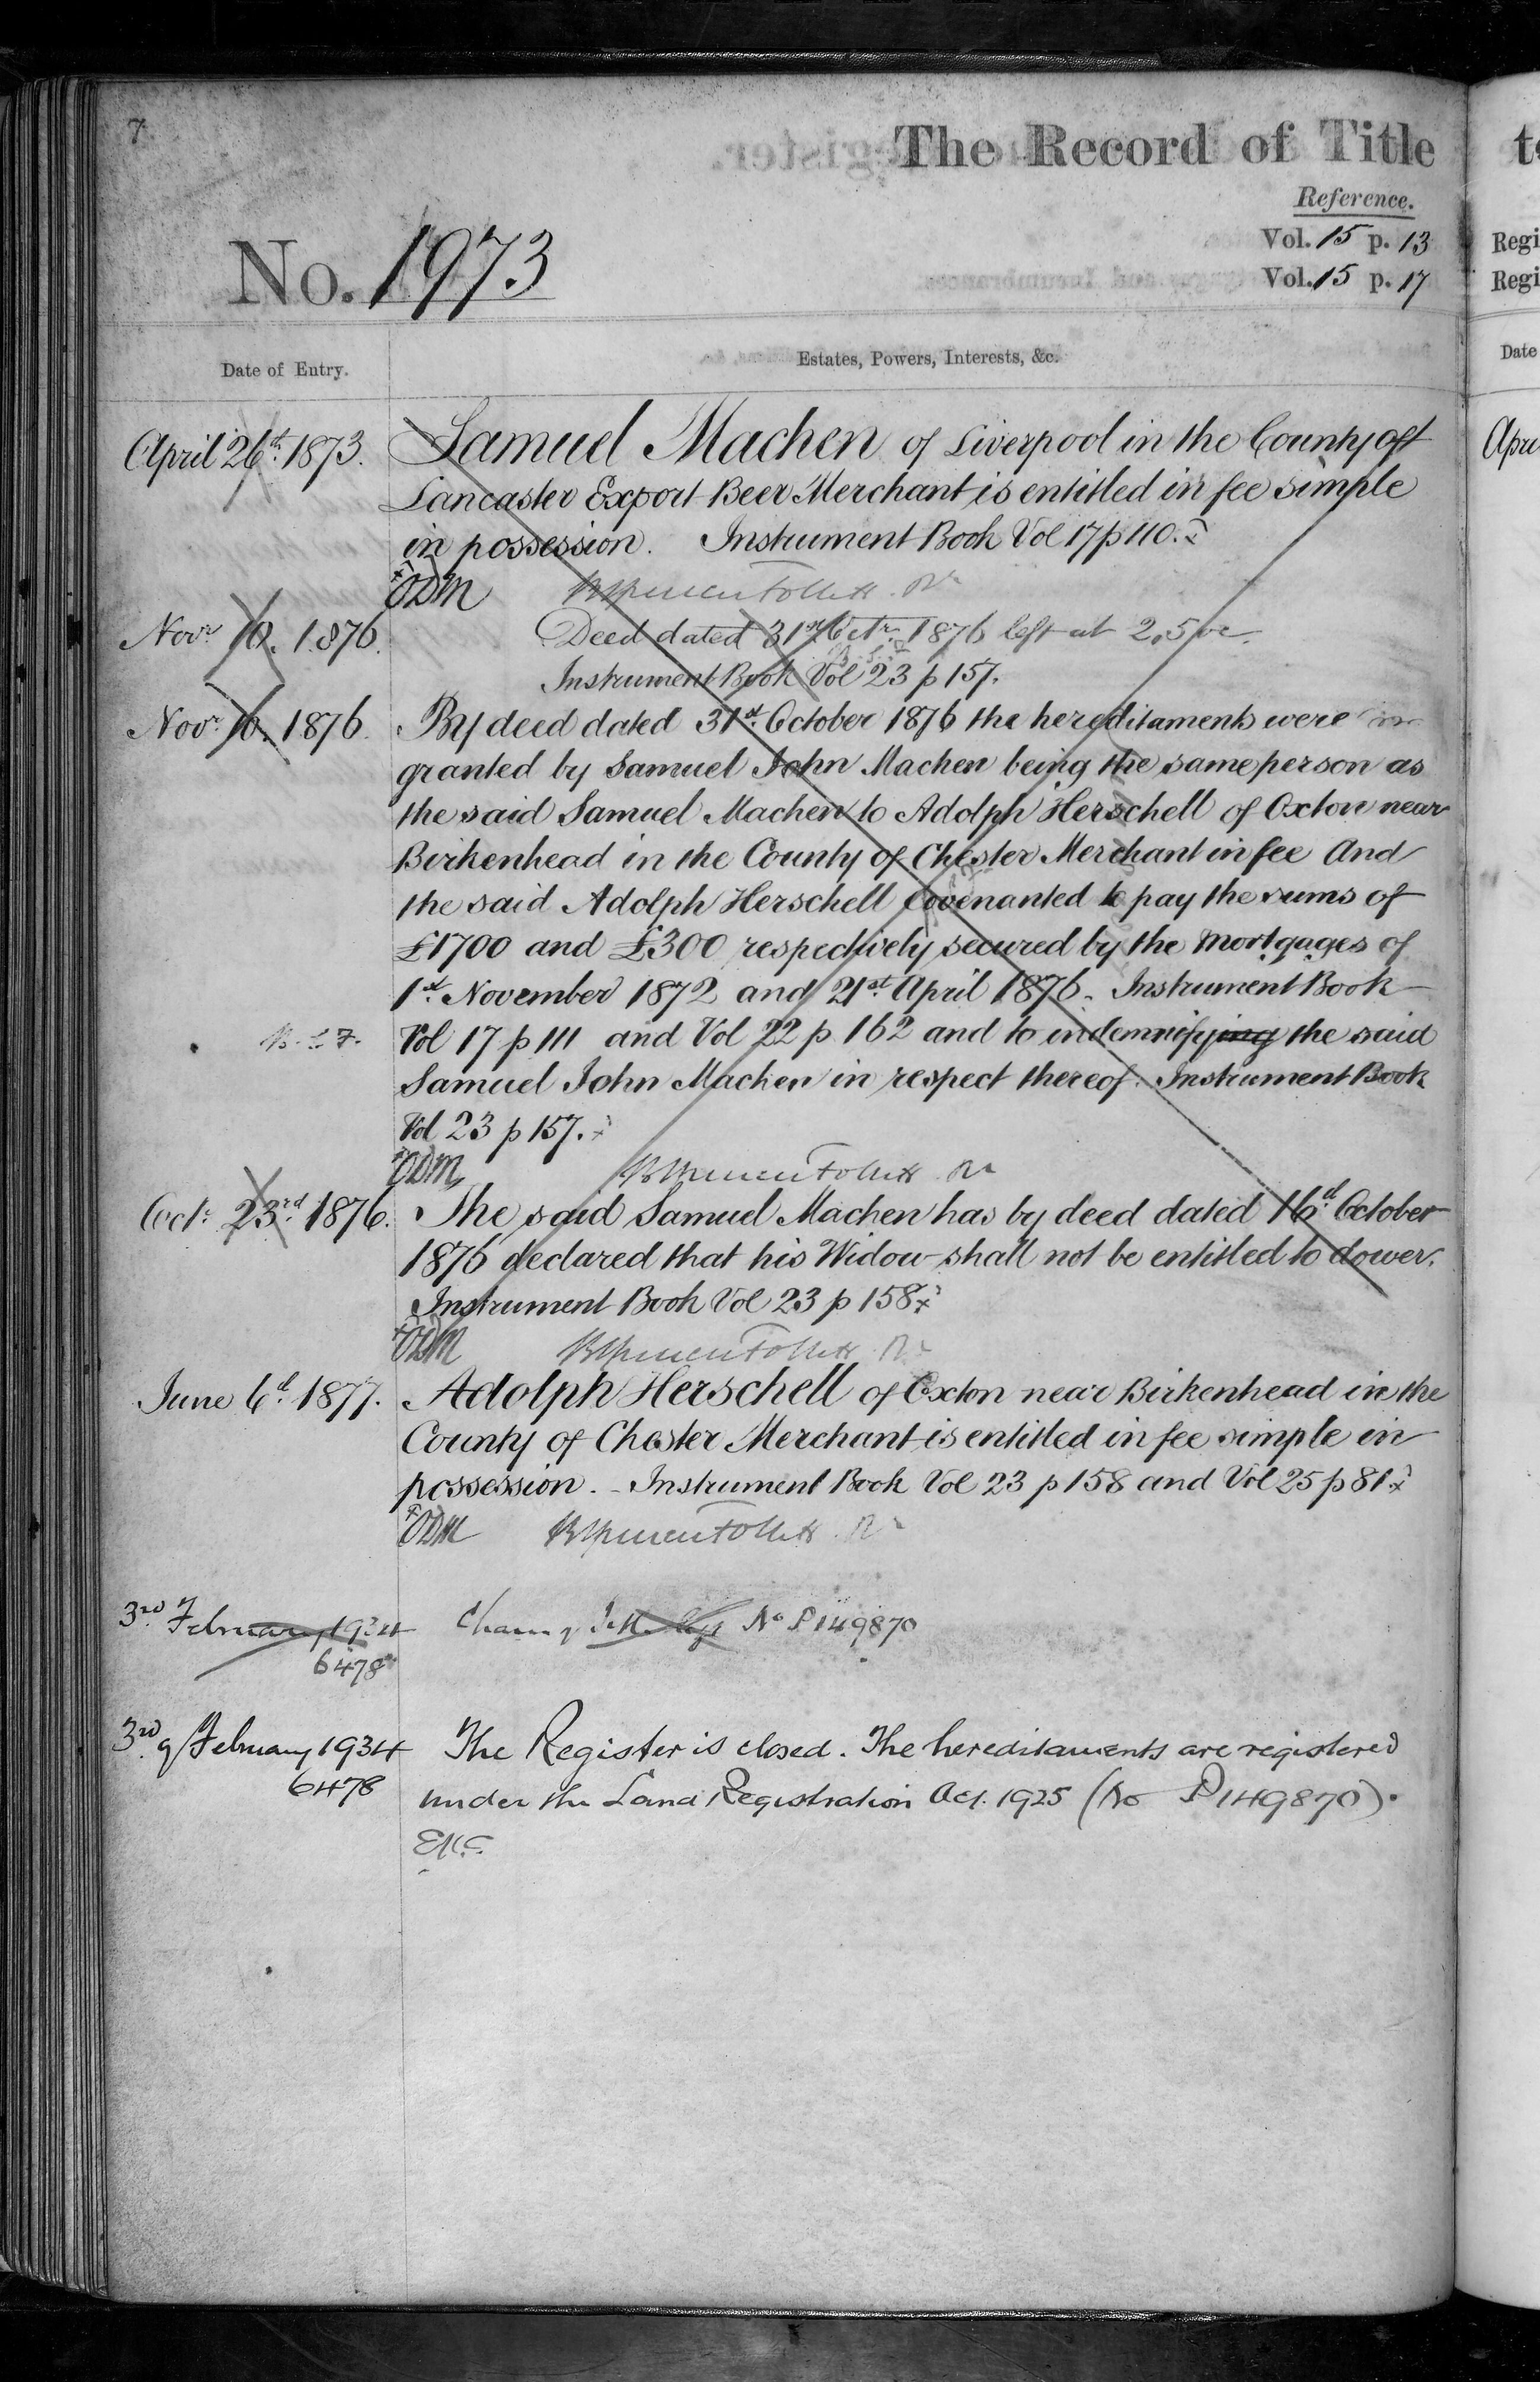 7
The Record of Title
Reference.
No. 1973
Vol. 15 p. 13
Vol. 15 p. 17
Date of Entry.
Estates, Powers, Interests, &c.
April 26th 1873.
Samuel Machen of Liverpool in the County of
Lancaster Export Beer Merchant is entitled in fee simple
in possession. Instrument Book Vol 17 p 110.
ODM
Novr 10. 1876.
Deed dated 31st Octr. 1876 left at 2,5
Instrument Book Vol 23 p 157.
Novr 10. 1876.
By deed dated 31st October 1876 the hereditaments were
granted by Samuel John Machen being the same person as
the said Samuel Machen to Adolph Herschell of Oxton near
Birkenhead in the County of Chester Merchant in fee And
the said Adolph Herschell covenanted to pay the sums of
£1700 and £300 respectively secured by the Mortgages of
1st November 1872 and 21st April 1876. Instrument Book
Vol 17 p 111 and Vol 22 p 162 and to indemnifying the said
Samuel John Machen in respect thereof. Instrument Book
Vol 23 p 157.
ODM
Octr 23rd 1876.
The said Samuel Machen has by deed dated 16th October
1876 declared that his Widow shall not be entitled to dower.
Instrument Book Vol 23 p 158
ODM
June 6th 1877.
Adolph Herschell of Oxton near Birkenhead in the
County of Chester Merchant is entitled in fee simple in
possession. - Instrument Book Vol 23 p 158 and Vol 25 p 81
ODM
3rd February 1934
No P149870
6478
3rd of February 1934
The Register is closed. The hereditaments are registered
6478
under the Land Registration Act. 1925 (No P149870).
t
Regi
Regi
Date
Apri